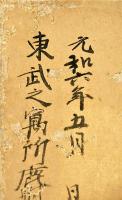 元和六年五月 日
東武之寓所虞